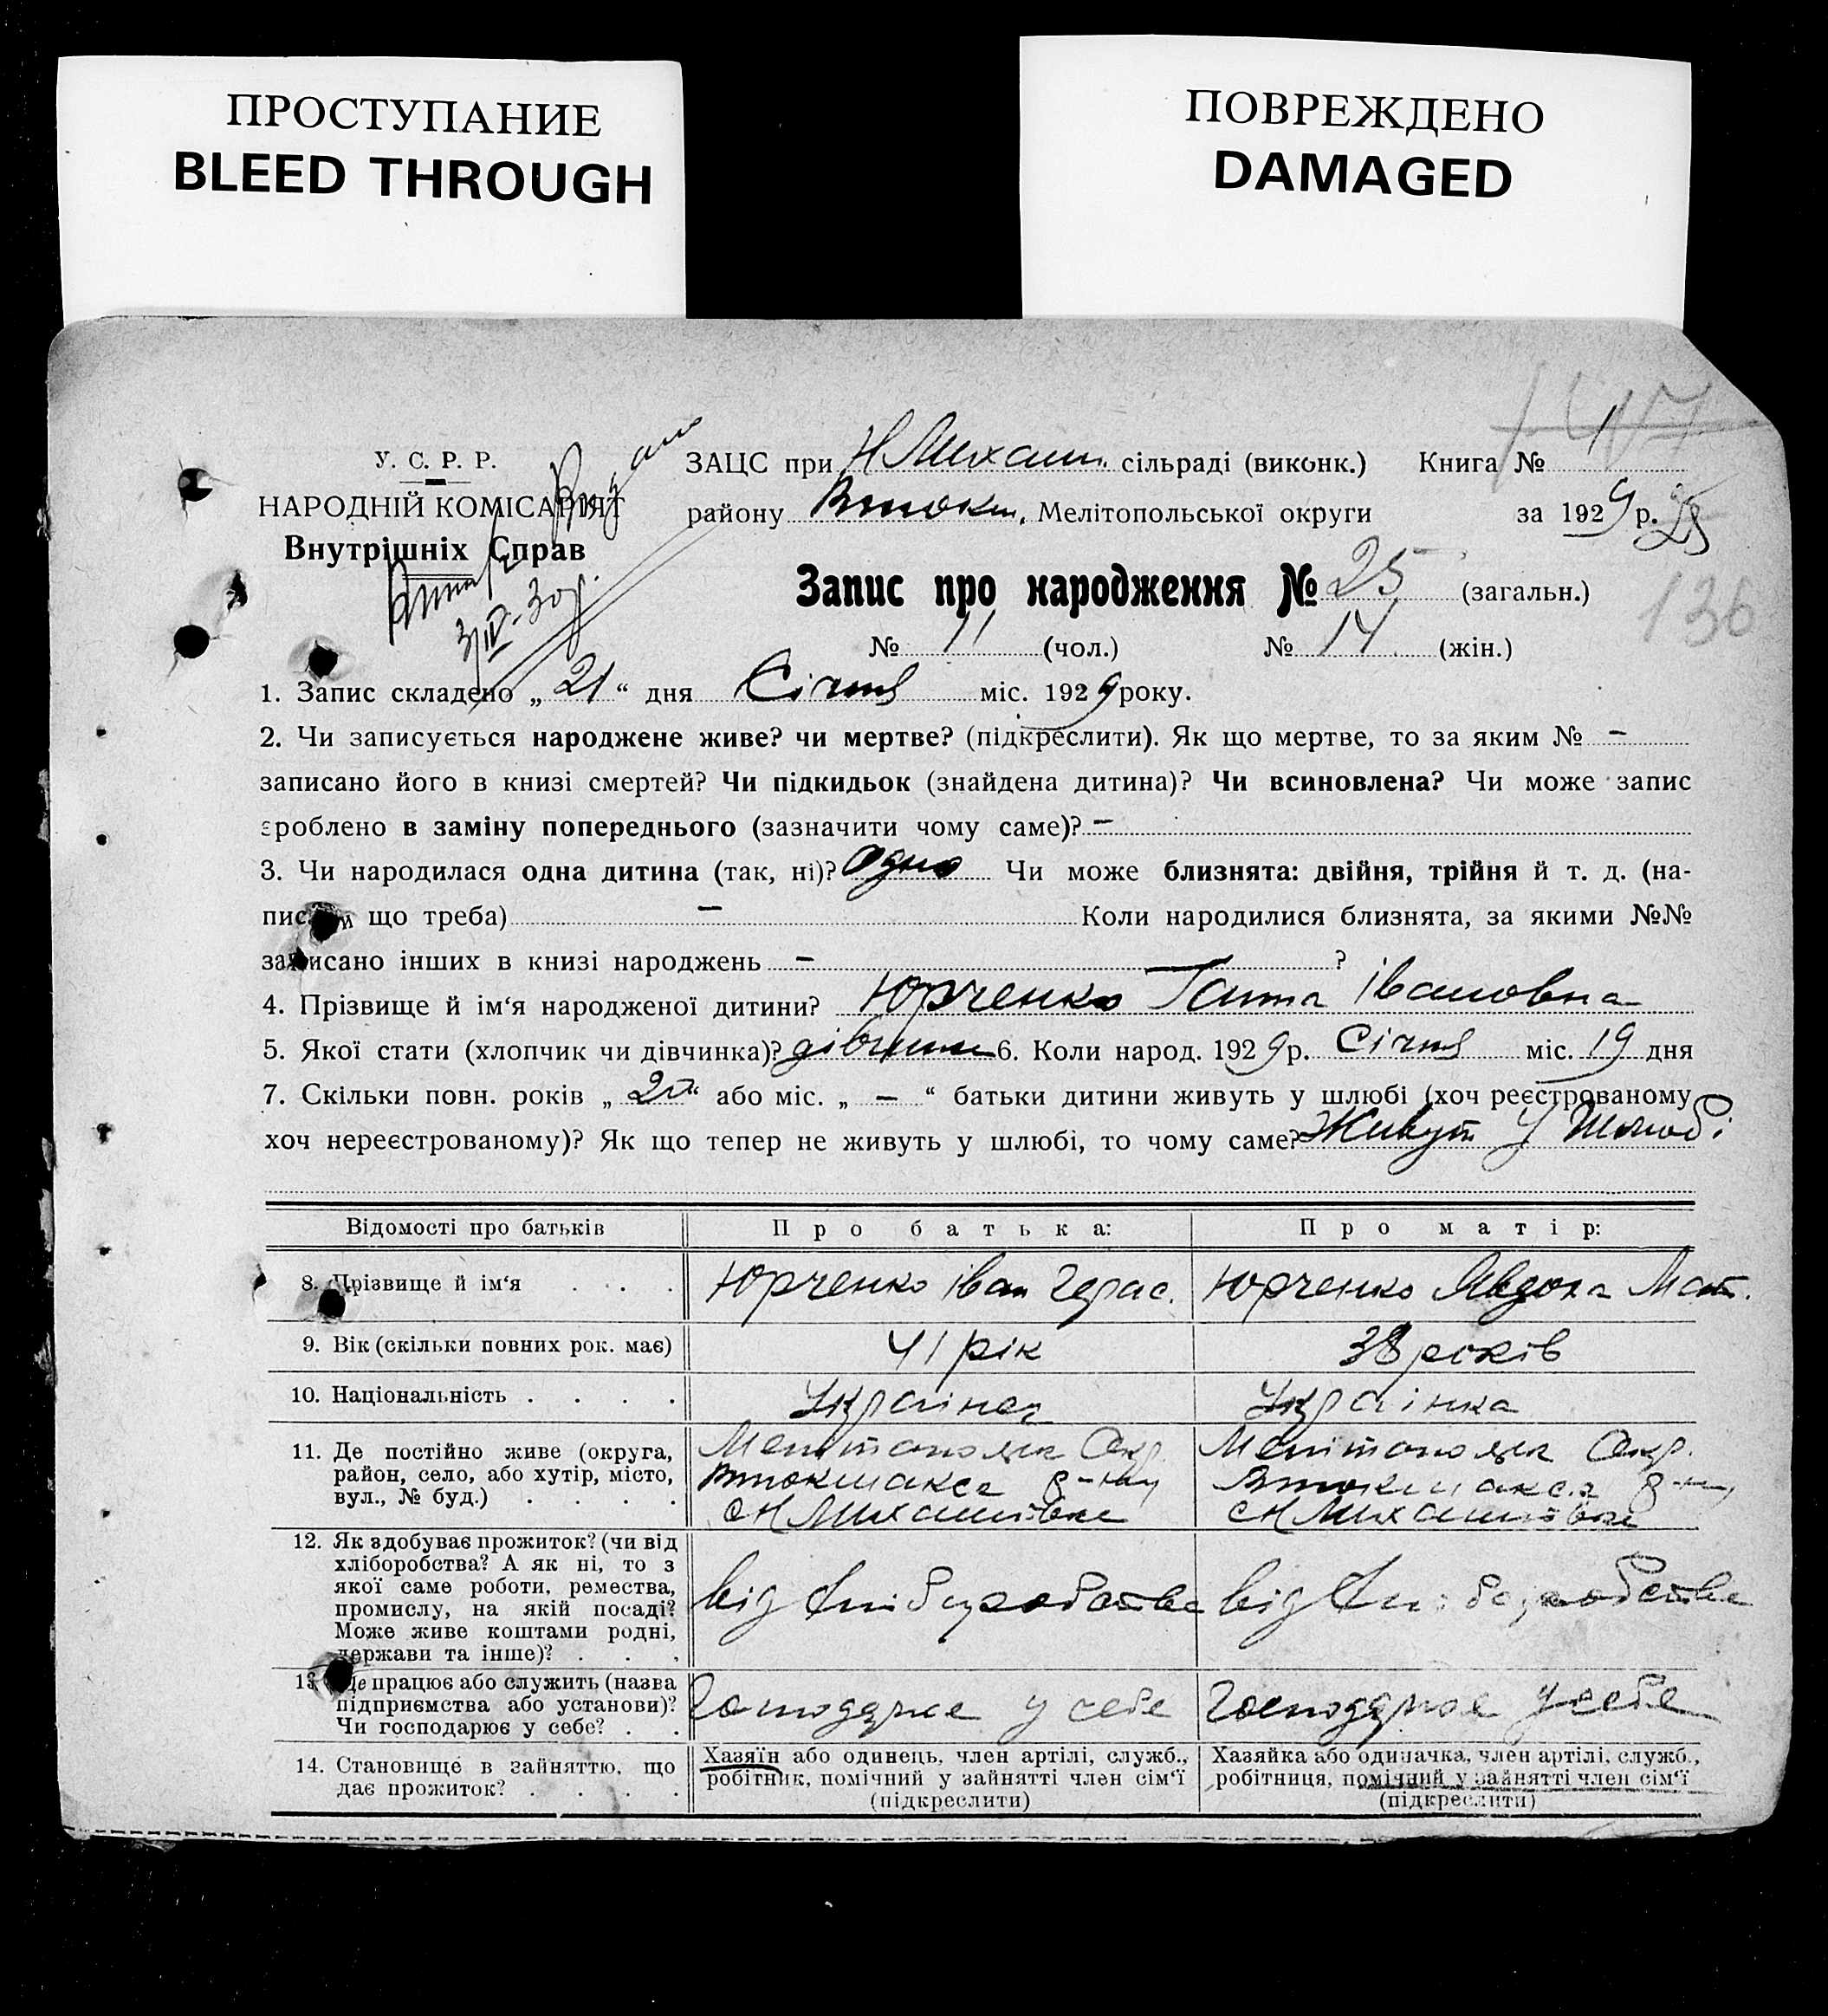 ПРОСТУПАНИЕ
BLEED THROUGH
ПОВРЕЖДЕНО
DAMAGED
У. С. Р. Р.
НАРОДНІЙ КОМІСАРІЯТ
Внутрішніх Справ
Видано
3/IV-30р.
ЗАЦС при Н Михайл. сільраді (виконк.) Книга № 1
району Втокм. Мелітопольської округи за 1929 р.
25
Запис про народження № 25 (загальн.)
136
№ 11 (чол.) № 14 (жін.)
1. Запис складено „ 21 “ дня Січня міс. 1929 року.
2. Чи записується народжене живе? чи мертве? (підкреслити). Як що мертве, то за яким № –
записано його в книзі смертей? Чи підкидьок (знайдена дитина)? Чи всиновлена? Чи може запис
зроблено в заміну попереднього (зазначити чому саме)? –
3. Чи народилася одна дитина (так, ні)? одно Чи може близнята: двійня, трійня й т. д. (на-
писати що треба) – Коли народилися близнята, за якими №№
записано інших в книзі народжень – ?
4. Прізвище й ім‘я народженої дитини? Юрченко Ганна Івановна
5. Якої стати (хлопчик чи дівчинка)? дівчина 6. Коли народ. 1929 р. Січня міс. 19 дня
7. Скільки повн. років „ 20 “ або міс. „ – “ батьки дитини живуть у шлюбі (хоч реєстрованому
хоч нереєстрованому)? Як що тепер не живуть у шлюбі, то чому саме? Живут У Шлюбі
Відомості про батьків Про батька: Про матір:
8. Прізвище й ім‘я . . . Юрченко Іван Герас. Юрченко Явдоха Мат.
9. Вік (скільки повних рок. має) 41 рік 38 років
10. Національність . . . . Українец Українка
11. Де постійно живе (округа,
район, село, або хутір, місто,
вул., № буд.) . . . .
Мелітопольска Окр.
Втокмакс. р-ну
с Н Михайлівка
Мелітопольска Окр.
Втокмакс. р-ну
с Н Михайлівка
12. Як здобуває прожиток? (чи від
хліборобства? А як ні, то з
якої саме роботи, ремества,
промислу, на якій посаді?
Може живе коштами родні,
держави та інше)? . . .
від хліборобства від хліборобства
13. Де працює або служить (назва
підприємства або установи)?
Чи господарює у себе? . .
Господарює у себе Господарює у себе
14. Становище в зайняттю, що
дає прожиток? . . . .
Хазяїн або одинець, член артілі, служб.,
робітник, помічний у зайнятті член сім‘ї
(підкреслити)
Хазяйка або одиначка, член артілі, служб.,
робітниця, помічний у зайнятті член сім‘ї
(підкреслити)